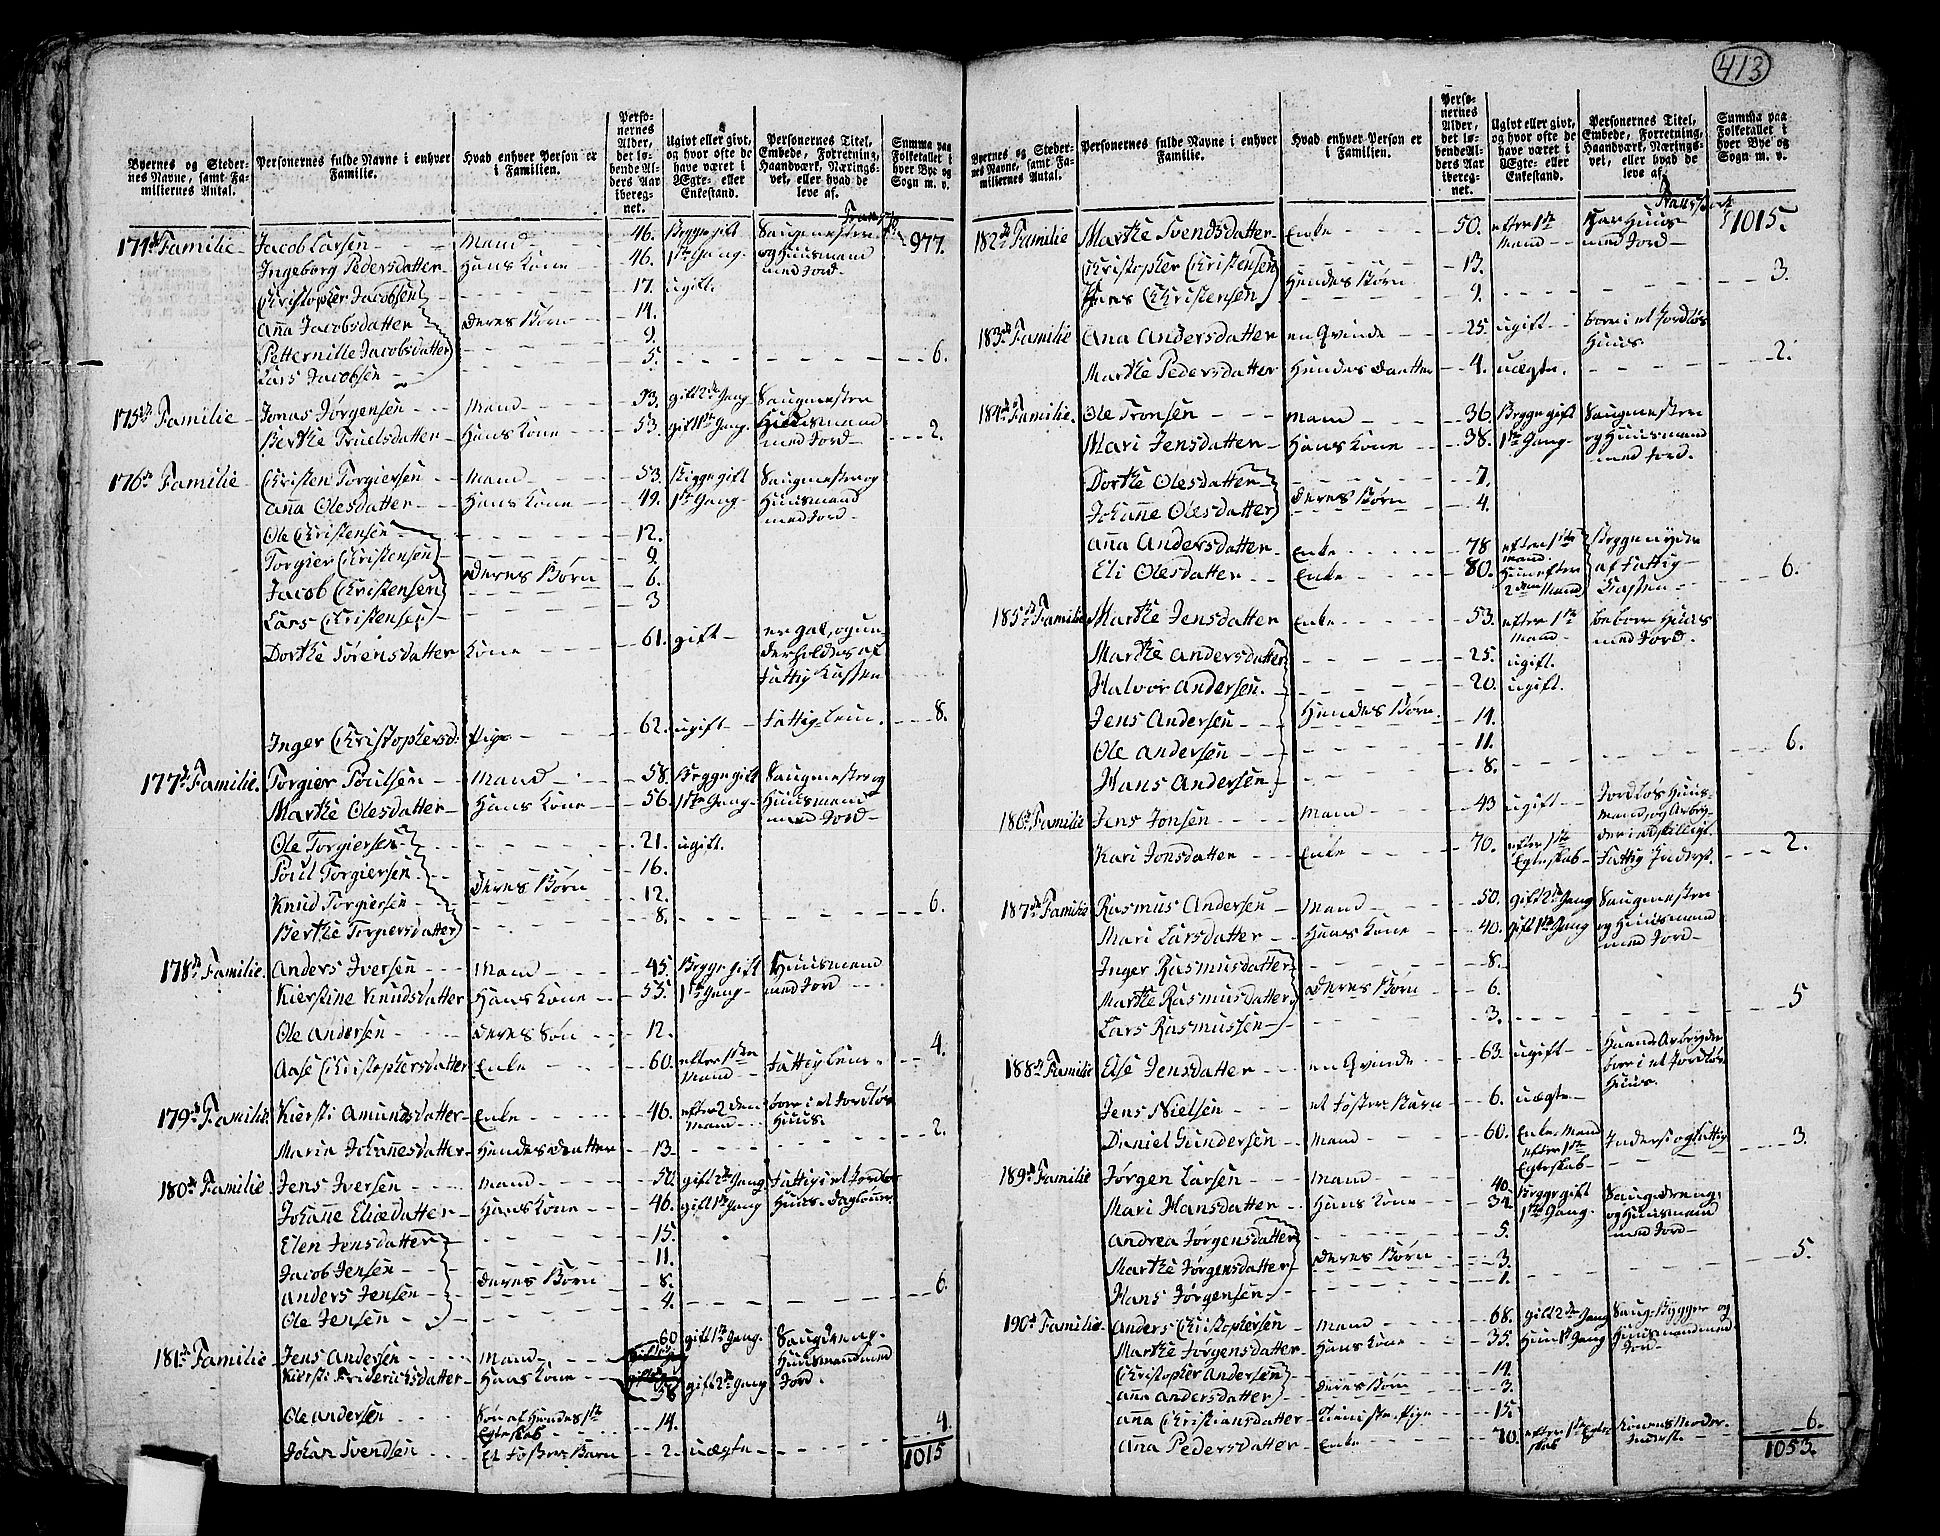 413
Byernes og Stedernes Navne, samt Familiernes Antal.
Personernes fulde Navne i enhver Familie.
Hvad enhver Person er i Familien.
Personernes Alder, det løbende Alders Aar iberegnet.
Ugivt eller givt, og hvor ofte de have været i Ægte- eller Enkestand.
Personernes Titel, Embede, Forretning, Haandværk, Næringsvei, eller hvad de leve af.
Summa paa Folketallet i hver Bye og Sogn m. v.
977.
174de Familie Jacob Larsen Mand 46. Begge gift Saugmester
Ingeborg Pedersdatter Hans Kone 46. 1ste Gang og Huusmand med Jord
Christopher Jacobsen 17. ugift.
Anna Jacobsdatter Deres Børn 14.
Petternille Jacobsdatter 9.
Lars Jacobsen 5. 6.
175de Familie Jonas Jørgensen Mand 53. gift 2den Gang Saugmester
Berthe Truelsdatter Hans Kone 53. gift 1ste Gang Huusmand med Jord 2.
176de Familie Christen Torgiersen Mand 53. Begge gift Saugmester og
Anna Olesdatter Hans Kone 49. 1ste Gang Huusmand med Jord
Ole Christensen 12.
Torgier Christensen 9.
Jacob Christensen Deres Børn 6.
Lars Christensen 3
Dorthe Sørensdatter Kone 61. gift er gal, og underholdes af Fattig Kassen
Inger Christophersd: Pige 62. ugift Fattig Lem. 8.
177de Familie. Torgier Poulsen Mand 58. Begge gift Saugmester og
Marthe Olesdatter Hans Kone 56. 1ste Gang Huusmand med Jord
Ole Torgiersen 21. ugift.
Poul Torgiersen 16.
Knud Torgiersen Deres Børn 12.
Berthe Torgiersdatter 8. 6.
178de Familie. Anders Iversen Mand 45. Begge gift Huusmand
Kierstine Knudsdatter Hans Kone 55. 1ste Gang med Jord
Ole Andersen Deres Søn 12.
Aase Christophersdatter Enke 60. efter 1ste Mand Fattig Lem 4.
179de Familie Kiersti Amundsdatter Enke 46. efter 2den Mand boer i et Jordløs Huus.
Maria Johannesdatter Hendes Datter 13 2.
180de Familie Jens Iversen Mand 50. gift 2den Gang Fattig i et Jordløs
Johanne Eliædatter Hans Kone 46. gift 1ste Gang Huus. Dagleuner
Elen Jensdatter 15.
Jacob Jensen 11.
Anders Jensen Deres Børn 8.
Ole Jensen 4. 6.
181de Familie Jens Andersen Mand 60 gift 1ste Gang. Saugdreng.
Kiersti Friderichsdatter Hans Kone 58 gift 2den Gang Huusmand med Jord.
Ole Andersen Søn af Hendes 1ste Egteskab 14.
Johan Svendsen Et Foster Barn 2. uægte 4.
1015
Byernes og Stedernes Navne, samt Familiernes Antal.
Personernes fulde Navne i enhver Familie.
Hvad enhver Person er i Familien.
Personernes Alder, det løbende Alders Aar iberegnet.
Ugivt eller givt, og hvor ofte de have været i Ægte- eller Enkestand.
Personernes Titel, Embede, Forretning, Haandværk, Næringsvei, eller hvad de leve af.
Summa paa Folketallet i hver Bye og Sogn m. v.
Transport
1015.
182de Familie Marthe Svendsdatter Enke 50. efter 1ste Mand har Huus med Jord
Christopher Christensen 13.
Hans Christensen Hendes Børn 9. 3.
183de Familie Ana Andersdatter en Qvinde 25. ugift boer i et Jordløs Huus
Marthe Pedersdatter Hendes Datter 4. uægte. 2.
184de Familie. Ole Tronsen Mand 36 Begge gift Saugmester
Mari Jensdatter Hans Kone 38. 1ste Gang og Huusmand med Jord.
Dorthe Olesdatter 7.
Johanne Olesdatter Deres Børn 4.
Anna Andersdatter Enke 78 efter 1ste Mand. Begge nyder
Eli Olesdatter Enke 80. Hun efter 2den Mand af Fattig Kassen 6.
185de Familie Marthe Jensdatter Enke 53. efter 1ste Mand beboer Huus med Jord.
Marthe Andersdatter 25. ugift.
Halvor Andersen. 20. ugift.
Jens Andersen Hendes Børn 14.
Ole Andersen 11.
Hans Andersen 8. 6.
186de Familie Jens Jonsen Mand 43 ugift Jordløs Huusmand, og Arbeyder
Kari Jonsdatter Enke 70. efter 1ste Egteskab Fattig Inderst. 2.
187de Familie Rasmus Andersen Mand 50. gift 2den Gang Saugmester
Mari Larsdatter Hans Kone 40. gift 1ste Gang og Huusmand med Jord
Inger Rasmusdatter 8.
Marthe Rasmusdatter Deres Børn 6.
Lars Rasmussen 3. 5
188de Familie Else Jensdatter en Qvinde 63. ugift Haand Arbeyde boer i et Jordløs Huus.
Jens Nielsen et Foster Barn 6. uægte
Daniel Gundersen Mand 60. Enke Mand efter 1ste Egteskab Inderst og fattig 3.
189de Familie Jørgen Larsen Mand 40 Begge gift Saugdreng,
Mari Hansdatter Hans Kone 32 1ste Gang. og Huusmand med Jord
Andrea Jørgensdatter 5.
Marthe Jørgensdatter Deres Børn 3.
Hans Jørgensen. 1. 5.
190de Familie. Anders Christophersen Mand 68. gift 2den Gang Saug-Bygger og
Marthe Jørgensdatter Hans Kone 35. Hun 1ste Gang Huusmand med Jord
Christopher Andersen 14.
Anna Andersdatter Deres Børn 3.
Anna Christiansdatter Tieniste Pige 15.
Anna Pedersdatter Enke 70. efter 1ste Egteskab Konens Moder Inderst. 6.
1053.